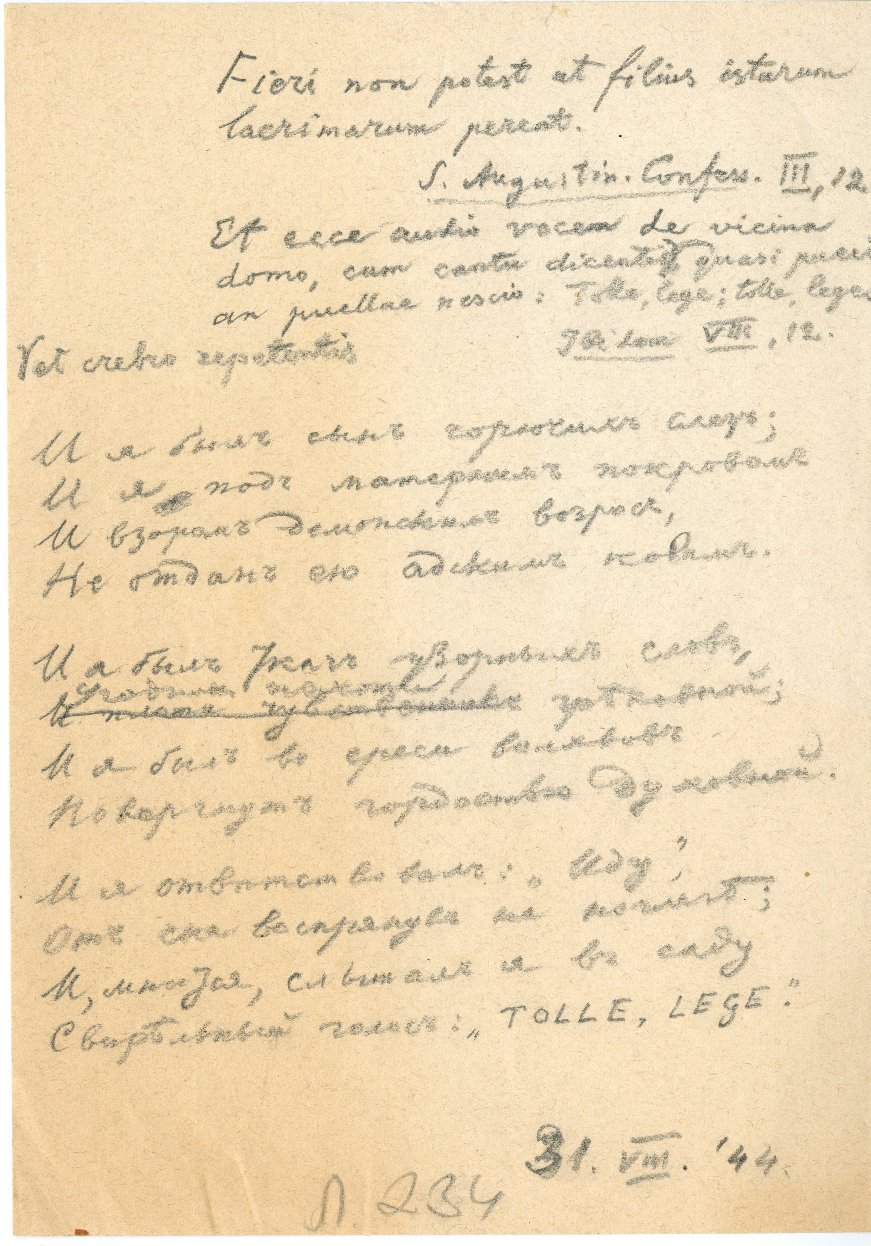 Fieri non potest ut filius istarum
lacrimarum pereat.
S. Augustin. Confess. III, 12
Et ecce audio vocem de vicina
domo, cum cantu dicentis quasi pueri
an puellae nescio: Tolle, lege; tolle, lege.
Ibidem VIII, 12.
et crebro repetentis
И я былъ сынъ горючихъ слезъ;
И я подъ матернимъ покровомъ
И взоромъ демонскимъ возросъ,
Не отданъ ею адскимъ ковамъ.
И я былъ ткачъ узорныхъ словъ,
Угодникъ похоти
И плоти чувственникъ грѣховной;
И я былъ въ ереси волхвовъ
Повергнутъ гордостью духовной.
И я отвѣтствовалъ: „Иду”,
Отъ сна воспрянувъ на ночлегѣ;
И, мнится, слышалъ я въ саду
Свирѣльный голосъ: „TOLLE, LEGE.”
31. VIII. '44.
Л. 234